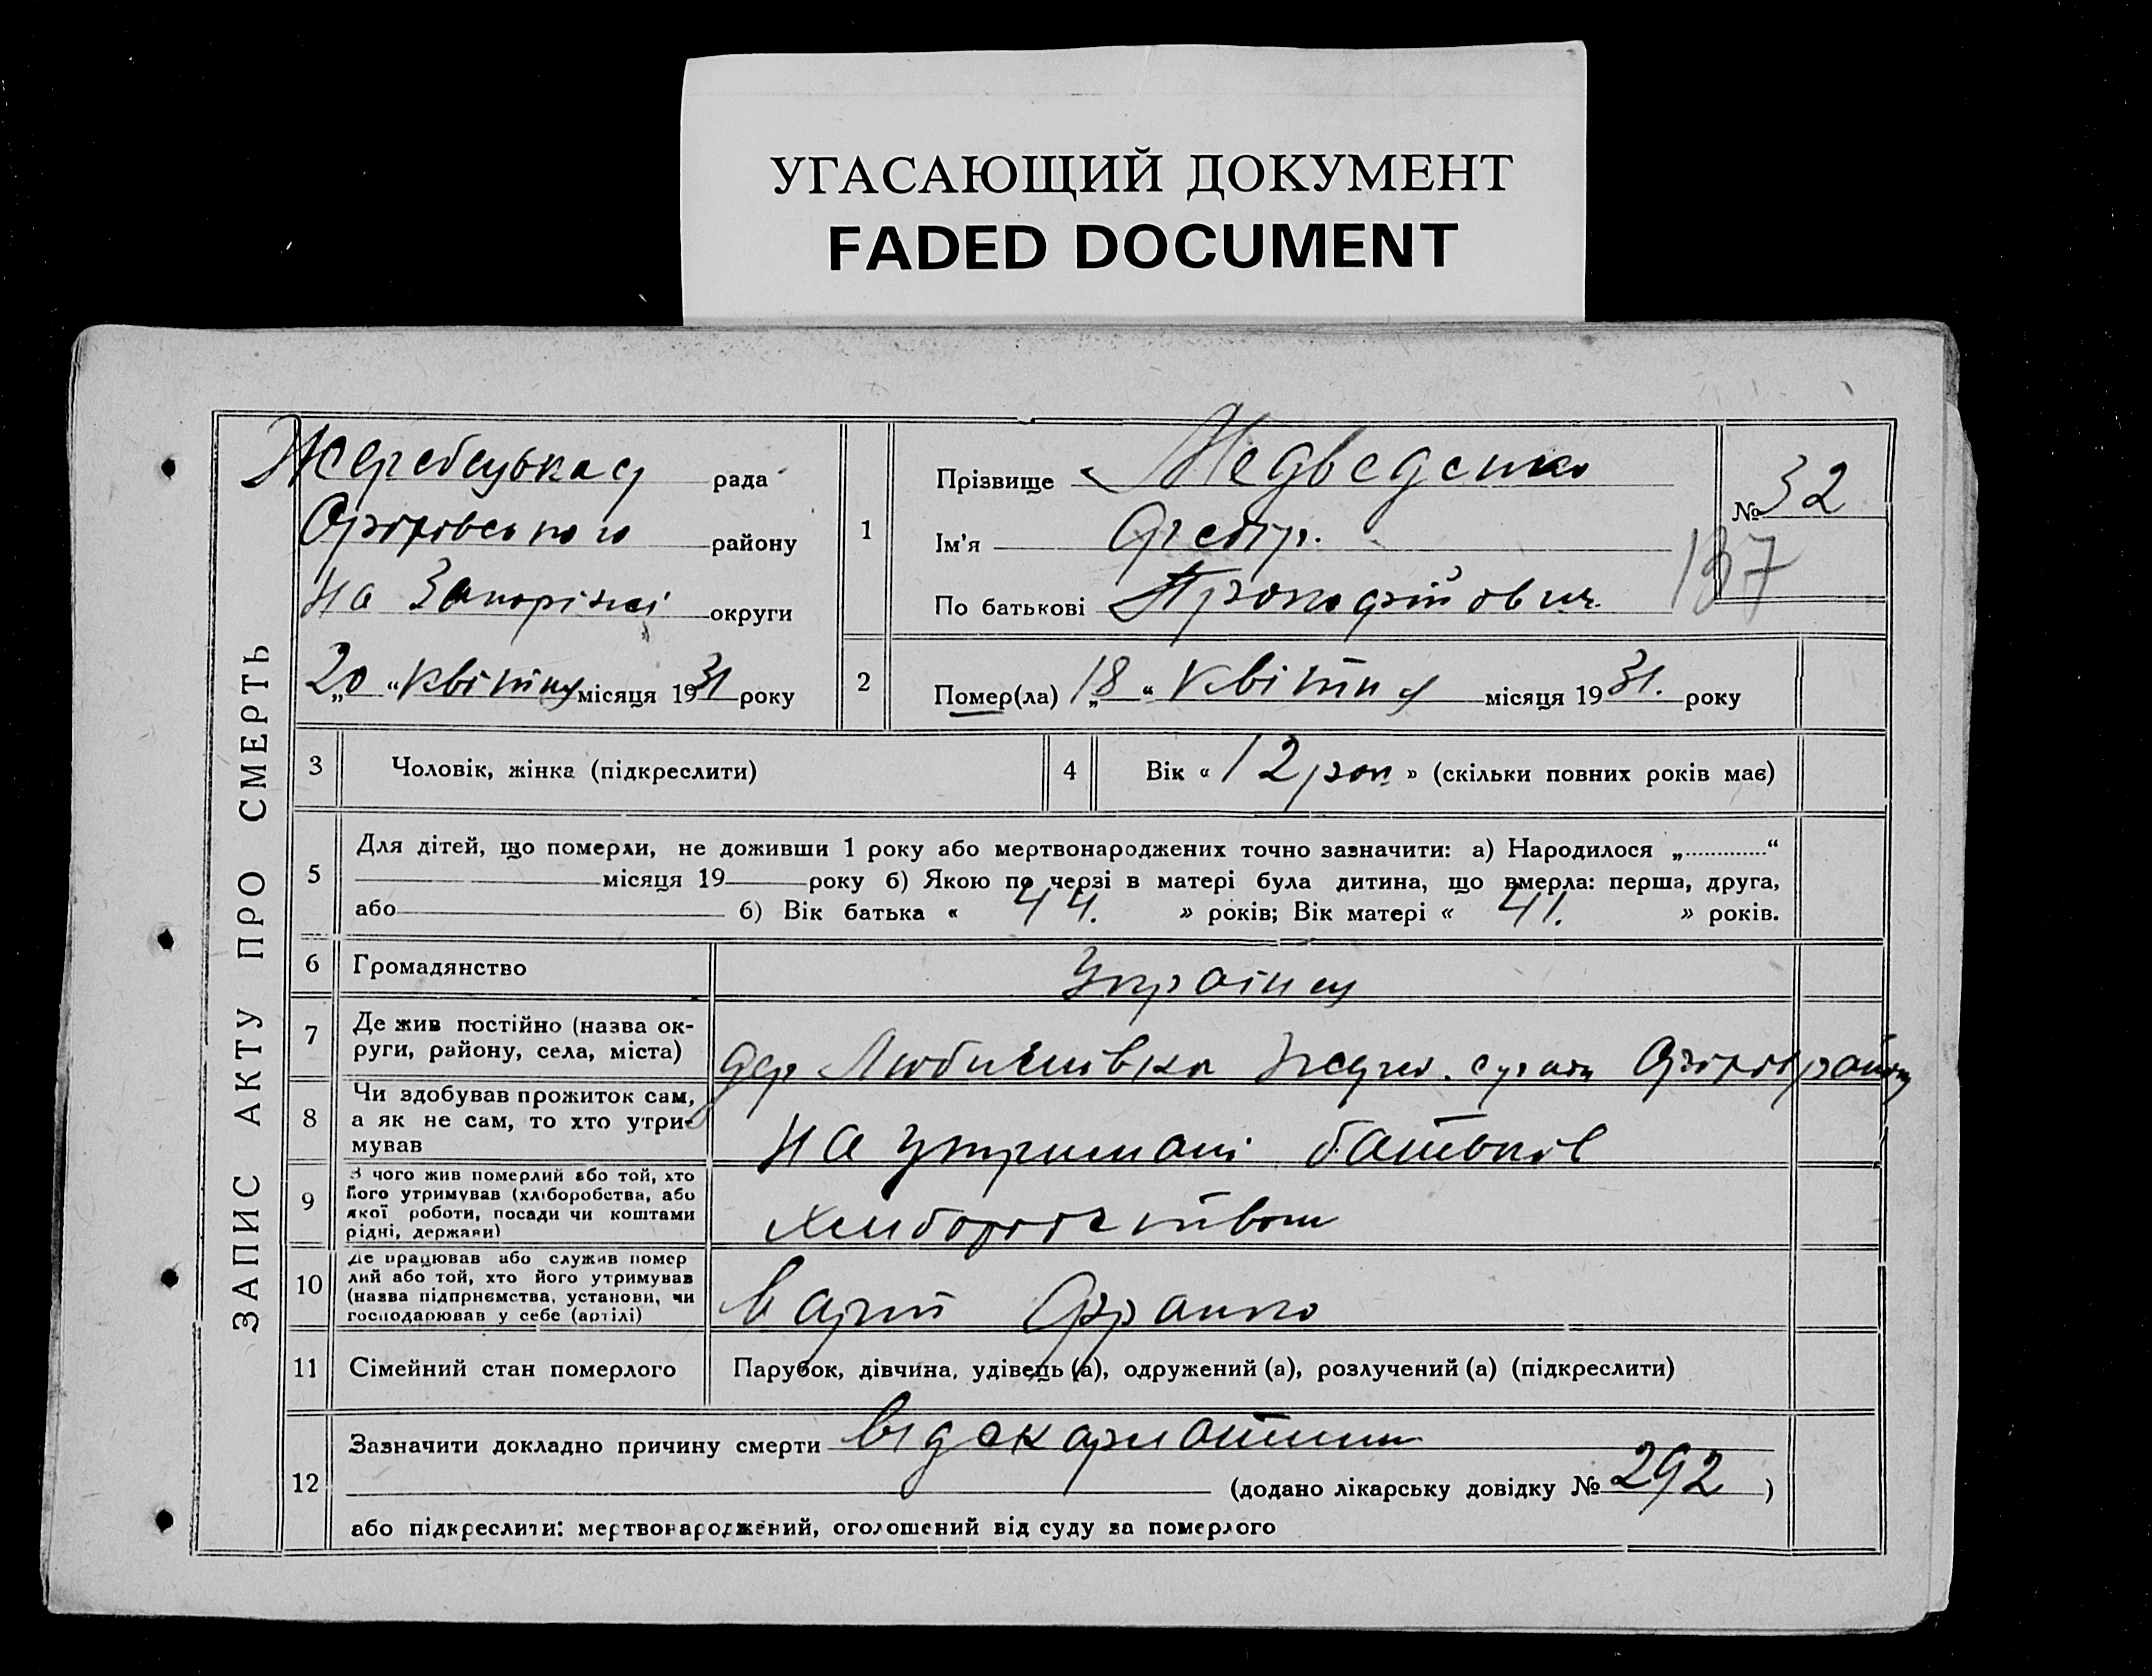 УГАСАЮЩИЙ ДОКУМЕНТ
FADED DOCUMENT
ЗАПИС АКТУ ПРО СМЕРТЬ
Жеребецька рада
Оріхівського району
на Запоріжжі округи
„20“ квітня місяця 1931 року
1
Прізвище Медведенко
Ім'я
По батькові Прокофійович
№ 32
137
2
Помер(ла) „18“ квітня місяця 1931. року
3 Чоловік, жінка (підкреслити)
4 Вік « 12 рок. » (скільки повних років має)
5 Для дітей, що померли, не доживши 1 року або мертвонароджених точно зазначити: а) Народилося „ “
місяця 19 року б) Якою по черзі в матері була дитина, що вмерла: перша, друга,
або б) Вік батька « 44. » років; Вік матері « 41. » років.
6 Громадянство Українец
7 Де жив постійно (назва ок-
руги, району, села, міста) дер Любимівка Жереб.
8 Чи здобував прожиток сам,
а як не сам, то хто утри-
мував на утримані батьків
9 З чого жив померлий або той, хто
його утримував (хліборобства, або
якої роботи, посади чи коштами
рідні, держави) хліборобством
10 Де працював або служив помер
лий або той, хто його утримував
(назва підприємства, установи, чи
господарював у себе (артілі) в арт Франко
11 Сімейний стан померлого Парубок, дівчина, удівець (а), одружений (а), розлучений (а) (підкреслити)
12 Зазначити докладно причину смерти від скарлатини
(додано лікарську довідку № 292 )
або підкреслити: мертвонароджений, оголошений від суду за померлого